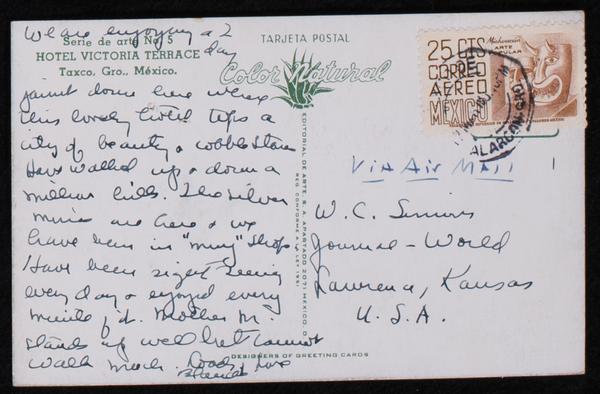 We are enjoying a 2
day
Serie de arte No. 5
HOTEL VICTORIA TERRACE
Taxco, Gro., México.
jaunt down here where
this lovely hotel tops a
city of beauty & cobblestone
Have walked up & down a
million hills. The silver
mines are here & we
have been in "many" shops
Have been sight seeing
every day & enjoyed every
minute of it. Mother M.
stands up well but cannot
walk much. Love
TARJETA POSTAL
Color Natural
EDITORIAL DE ARTE, S. A. APARTADO 2071 MEXICO, D.
REG. CONFORME A LA LEY 1951
DESIGNERS OF GREETING CARDS
25 CTS
CORREO
AEREO
MEXICO
Michoacan
ARTE
POPULAR
ALARCON, GRO.
Via Air Mail
W. C. Simons
Journal-World
Lawrence, Kansas
U. S. A.